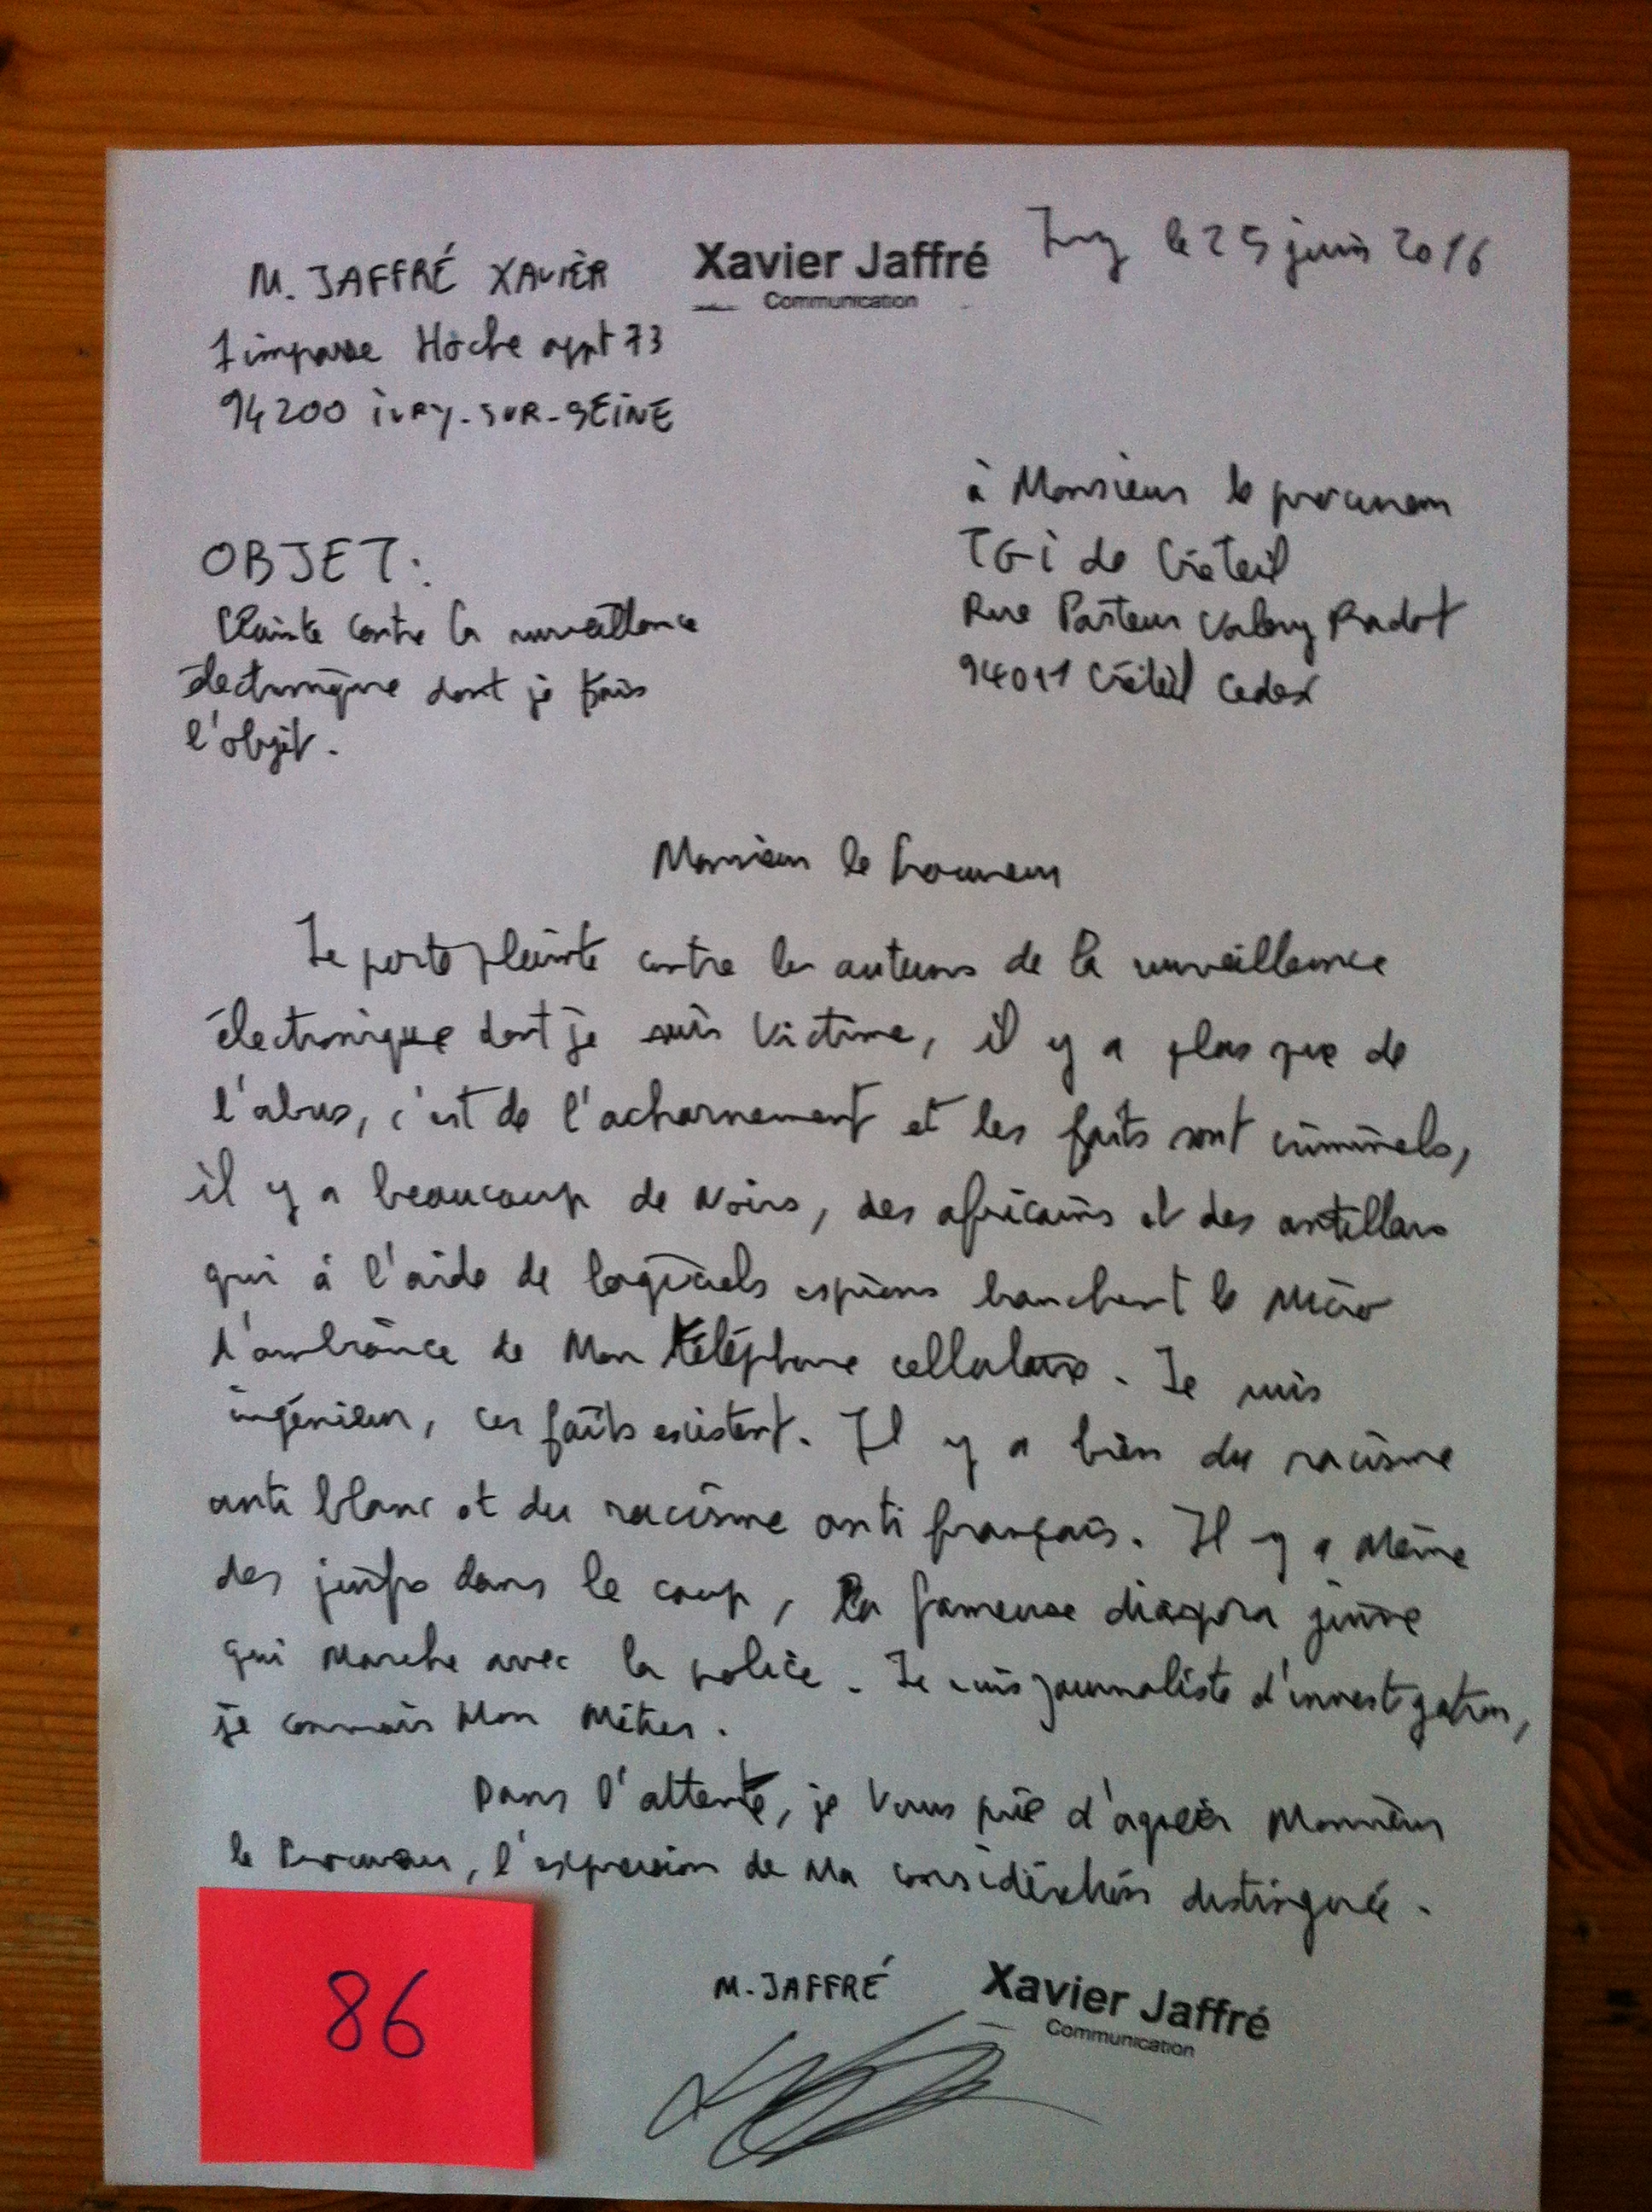 M. JAFFRÉ XAVIER
Xavier Jaffré
Communication
Ivry le 25 juin 2016
1 impasse Hoche appt 73
94200 IVRY-SUR-SEINE
à Monsieur le procureur
TGI de Créteil
Rue Pasteur Valery Radot
94011 Créteil Cedex
OBJET:
Plainte contre la surveillance
électronique dont je fais
l'objet.
Monsieur le Procureur
Je porte plainte contre les auteurs de la surveillance
électronique dont je suis victime, il y a plus que de
l'abus, c'est de l'acharnement et les faits sont criminels,
il y a beaucoup de Noirs, des africains et des antillais
qui à l'aide de logiciels espions branchent le Micro
d'ambiance de Mon téléphone cellulaire. Je suis
ingénieur, ces faits existent. Il y a bien du racisme
anti blanc et du racisme anti français. Il y a Même
des juifs dans le coup, la fameuse diaspora juive
qui Marche avec la police. Je suis journaliste d'investigation,
je connais Mon Métier.
Dans l'attente, je Vous prie d'agréer Monsieur
le Procureur, l'expression de Ma considération distinguée.
86
M. JAFFRÉ
Xavier Jaffré
Communication